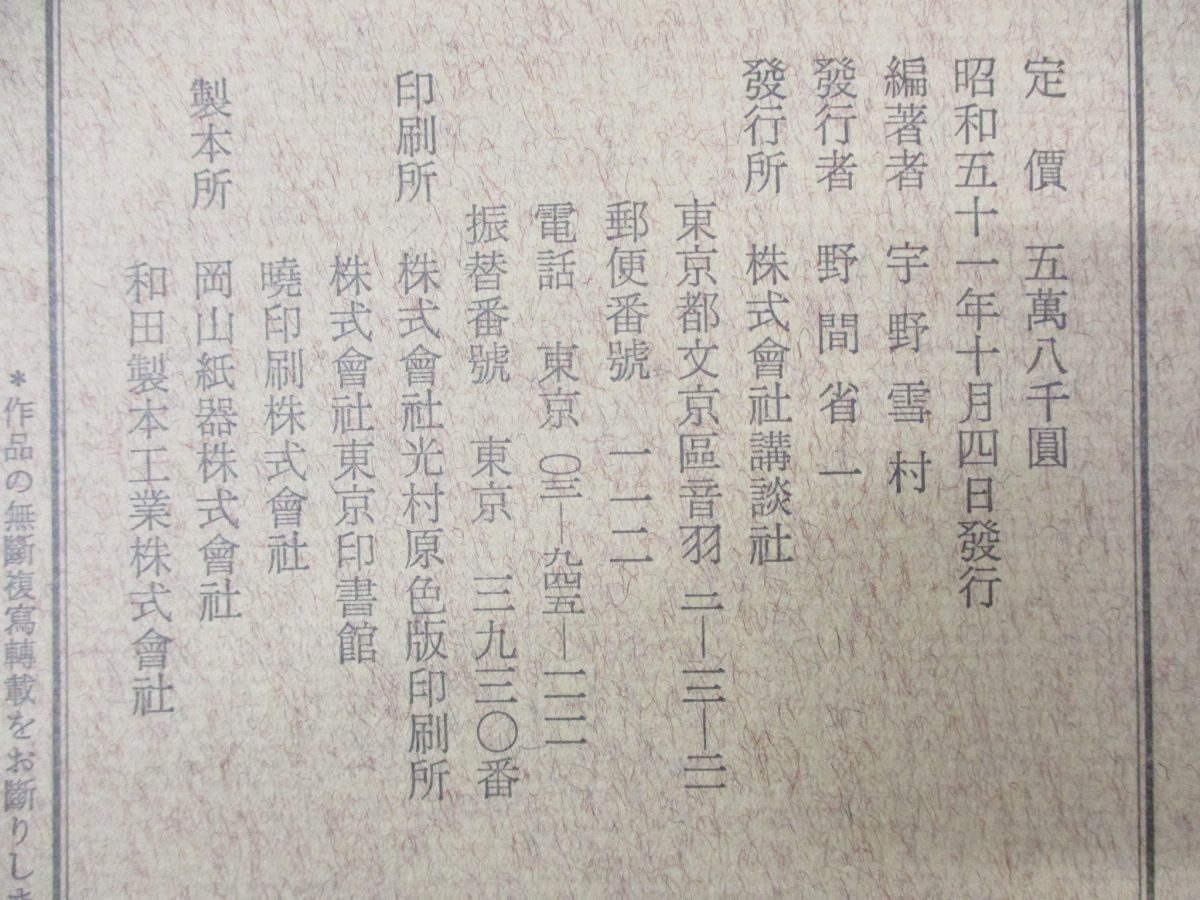 定價 五萬八千圓
昭和五十一年十月四日發行
編著者 宇野雪村
發行者 野間省一
發行所 株式會社講談社
東京都文京區音羽二―一二―二一
郵便番號 一一二
電話 東京 〇三―九四五―一一一一
振替番號 東京 三九三〇番
印刷所 株式會社光村原色版印刷所
株式會社東京印書館
曉印刷株式會社
製本所 岡山紙器株式會社
和田製本工業株式會社
*作品の無斷複寫轉載をお斷りしま